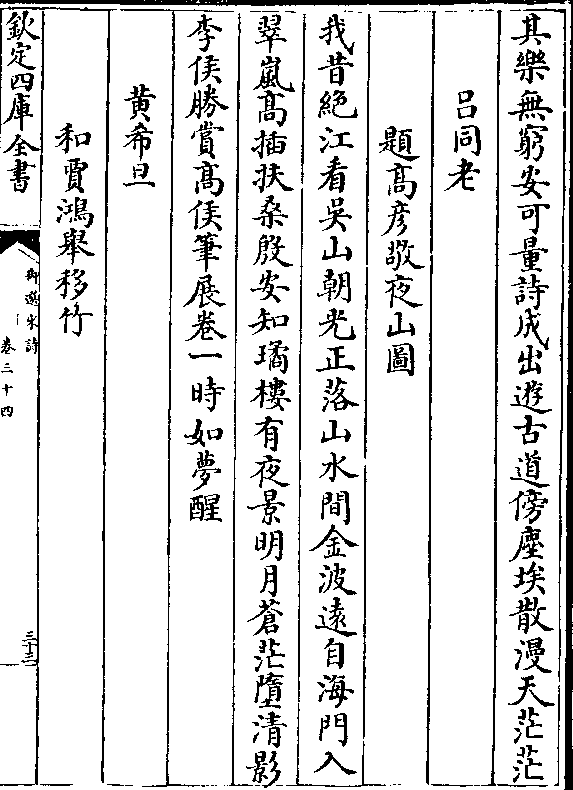 其樂無窮安可量詩成出遊古道傍塵埃散漫天茫茫
吕同老
題髙彦敬夜山圖
我昔絶江看吳山朝光正落山水間金波遠自海門入
翠嵐髙插扶桑殷安知璚樓有夜景明月蒼茫墮清影
李侯勝賞髙侯筆展卷一時如夢醒
黄希旦
和賈鴻舉移竹
欽定四庫全書
御選宋詩
卷三十四
三十三